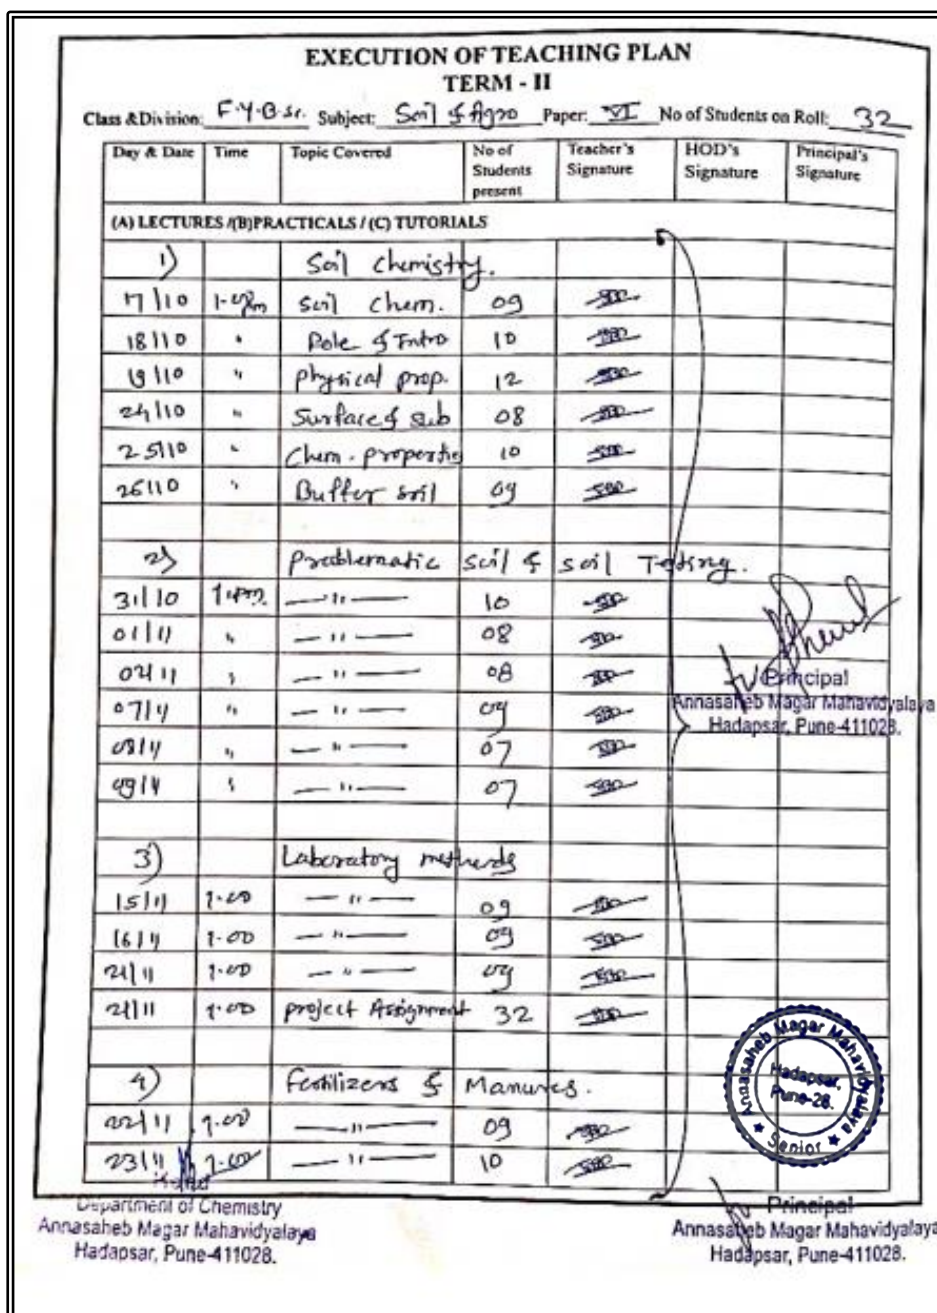 EXECUTION OF TEACHING PLAN
TERM - II
Class & Division: F.Y.B.Sc. Subject: Soil & Agro Paper: VI No of Students on Roll: 32
Day & Date Time Topic Covered No of Students present Teacher's Signature HOD's Signature Principal's Signature
(A) LECTURES /(B)PRACTICALS / (C) TUTORIALS
1) Soil Chemistry.
17/10 1-00pm Soil Chem. 09
18/10 " Role & Intro 10
19/10 " Physical prop. 12
24/10 " Surface & sub 08
25/10 " Chem. properties 10
26/10 " Buffer soil 09
2) Problematic Soil & Soil Testing.
31/10 1-pm —"— 10
01/11 " —"— 08
02/11 " —"— 08
07/11 " —"— 09
08/11 " —"— 07
09/11 " —"— 07
Principal
Annasaheb Magar Mahavidyalaya
Hadapsar, Pune-411028.
3) Laboratory methods
15/11 1-00 —"— 09
16/11 1-00 —"— 09
21/11 1-00 —"— 09
21/11 1-00 project Assignment 32
4) Fertilizers & Manures.
22/11 1-00 —"— 09
23/11 1-00 —"— 10
Annasaheb Magar Mahavidyalaya
Hadapsar,
Pune-28.
★ Senior ★
Head
Department of Chemistry
Annasaheb Magar Mahavidyalaya
Hadapsar, Pune-411028.
Principal
Annasaheb Magar Mahavidyalaya
Hadapsar, Pune-411028.